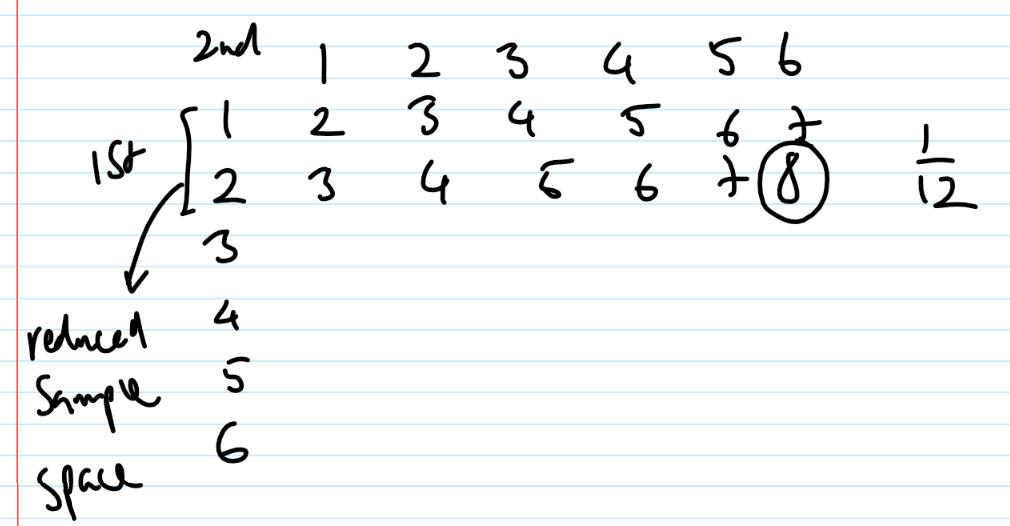 2nd 1 2 3 4 5 6
1st 1 2 3 4 5 6 7
2 3 4 5 6 7 8 1/12
3
reduced 4
Sample 5
space 6